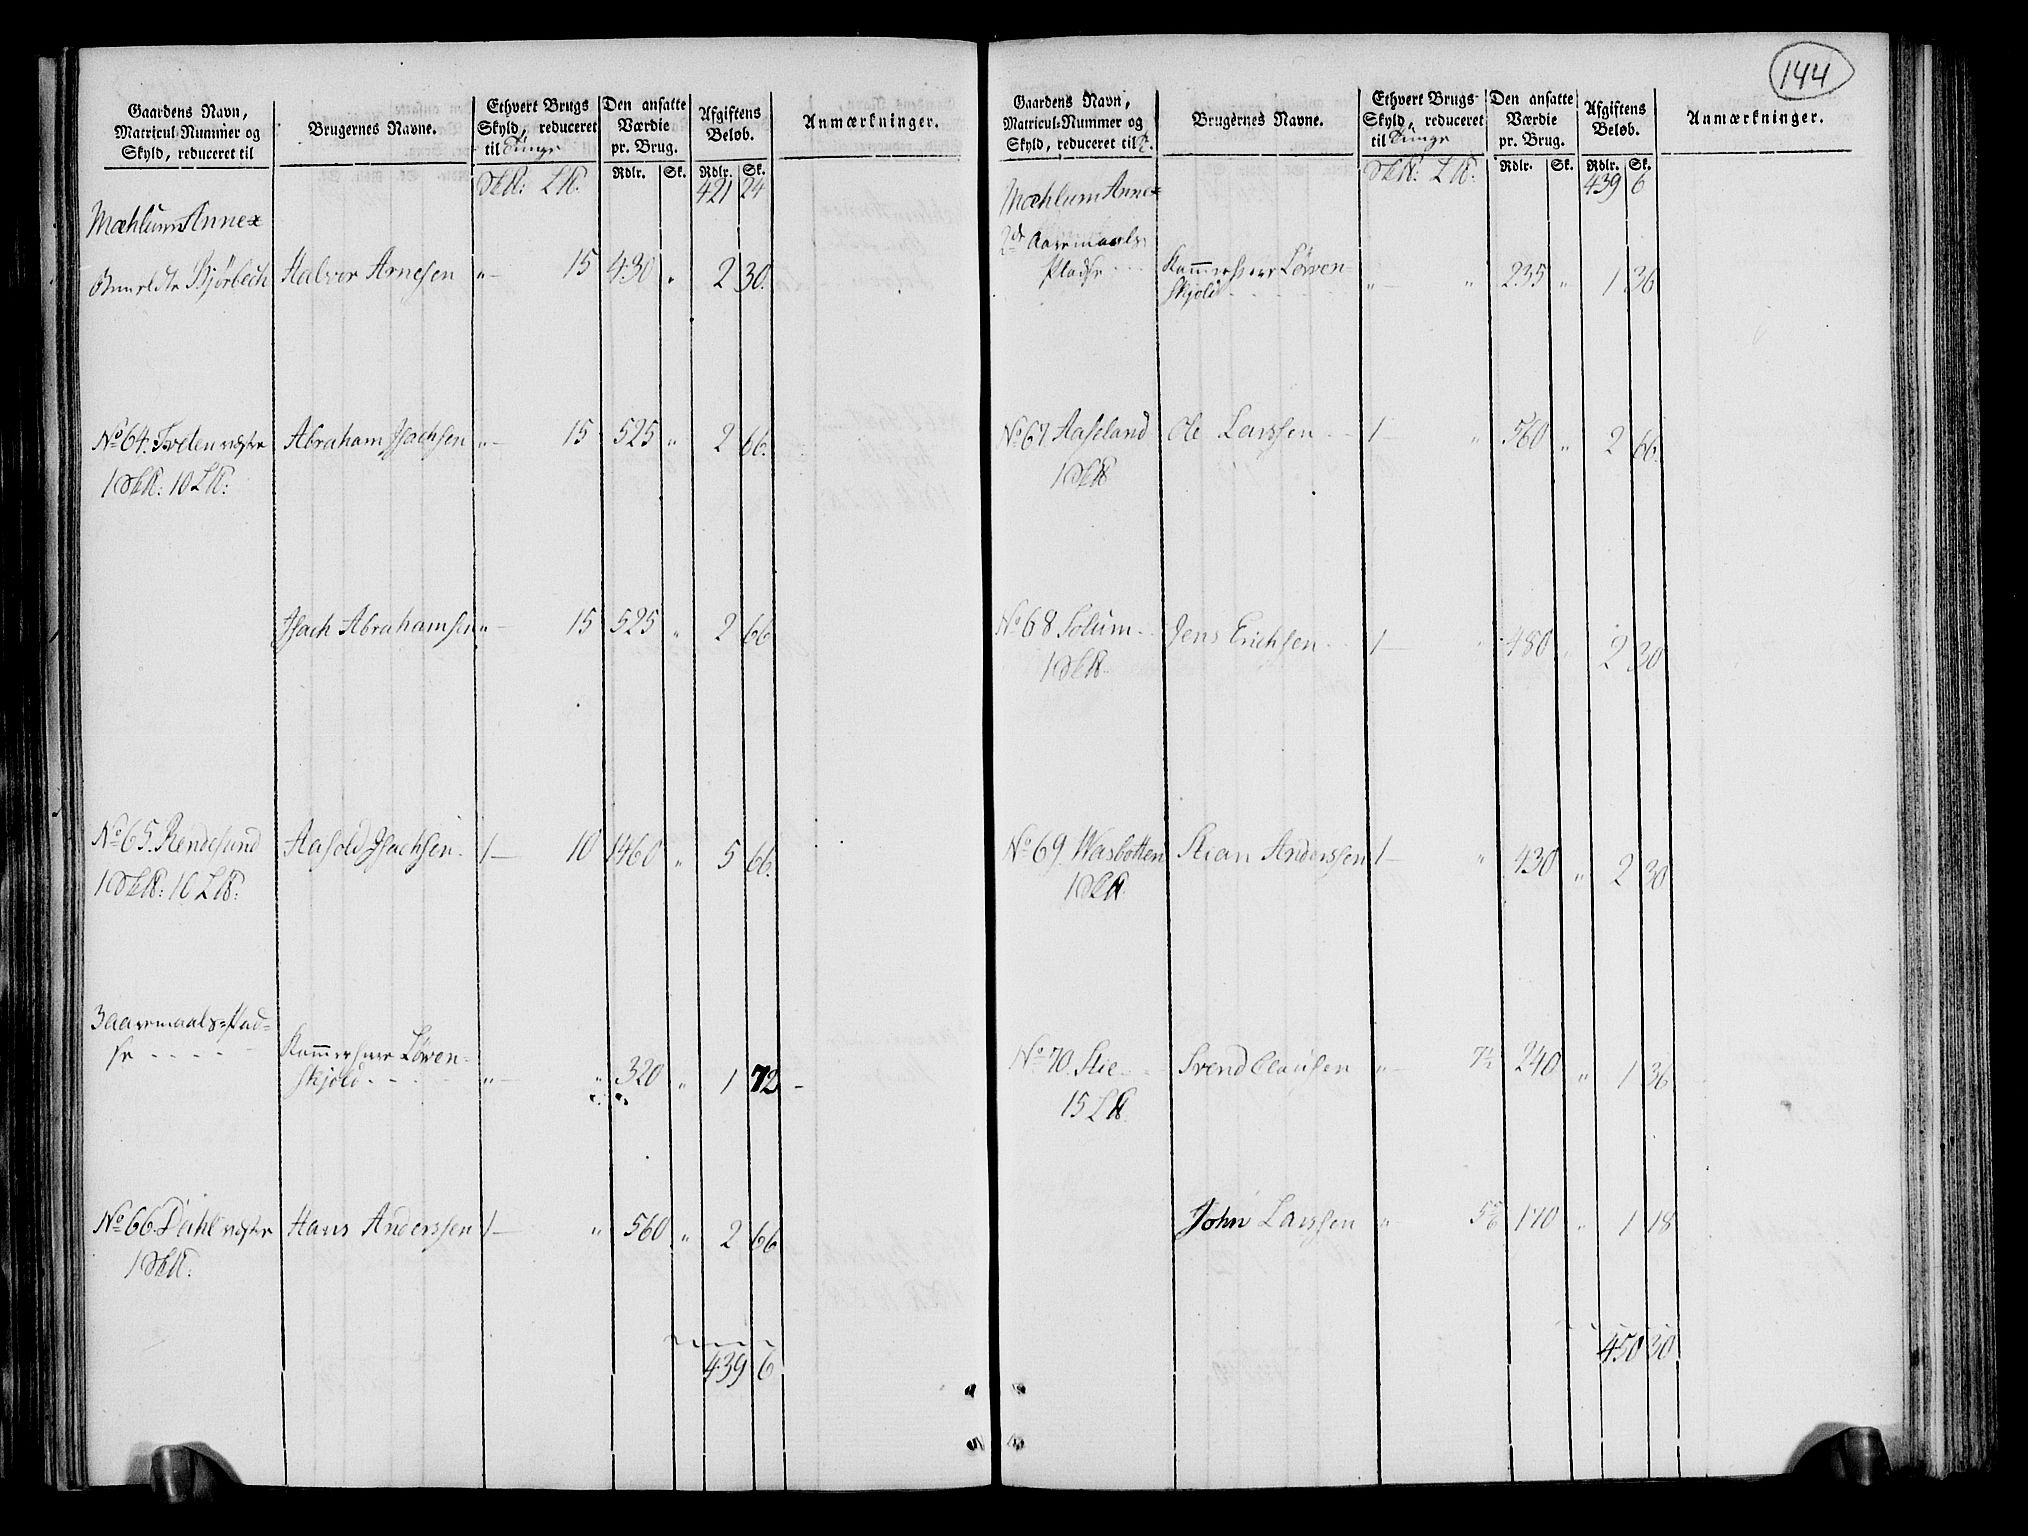 144
Gaardens Navn,
Matricul-Nummer og
Skyld, reduceret til
Brugernes Navne.
Ethvert Brugs
Skyld, reduceret
til Tunge
Den ansatte
Værdie
pr. Brug.
Rdlr. Sk.
Afgiftens
Beløb.
Rdlr. Sk.
Anmærkninger.
SkÞ: LÞ. 421 24
Mæhlum Annex
Bjørbech Halvor Arnesen „ — 15 430 „ 2 30.
No 64. Tveten vestre Abraham Isachsen „ — 15 525 „ 2 66.
1 SkÞ: 10 LÞ:
Isach Abrahamsen „ — 15 525 „ 2 66
No 65. Rendesund Aasold Isachsen. 1 — 10 1460 „ 5 66.
1 SkÞ: 10 LÞ:
3 aaremaals Plad-
se - - - - Kammerherre Löven-
skjold - - - - „ — „ 320 „ 1 72
No 66. Dahl vestre Hans Anderssen 1 — „ 560 „ 2 66
1 SkÞ.
439 6
Gaardens Navn,
Matricul-Nummer og
Skyld, reduceret til T.
Brugernes Navne.
Ethvert Brugs-
Skyld, reduceret
til Tunge
Den ansatte
Værdie
pr. Brug.
Rdlr. Sk.
Afgiftens
Beløb.
Rdlr. Sk.
Anmærkninger.
SkÞ: LÞ. 439 6
Mæhlum Annex
2de Aaremaals
Pladse - - - Kammerherre Löven-
skjold - - - - „ — „ 235 „ 1 36
No 67 Aaseland Ole Larssen - - 1 — „ 560 „ 2 66.
1 SkÞ
No 68 Solum - - Jens Erichsen - - 1 — „ 480 „ 2 30
1 SkÞ.
No 69. Wasbotten Stian Anderssen 1 — „ 430 „ 2 30
1 SkÞ.
No 70. Stie - - Svend Clausen „ — 7½ 240 „ 1 36
15 LÞ.
John Larssen „ — 5 5/6 170 „ 1 18
450 30